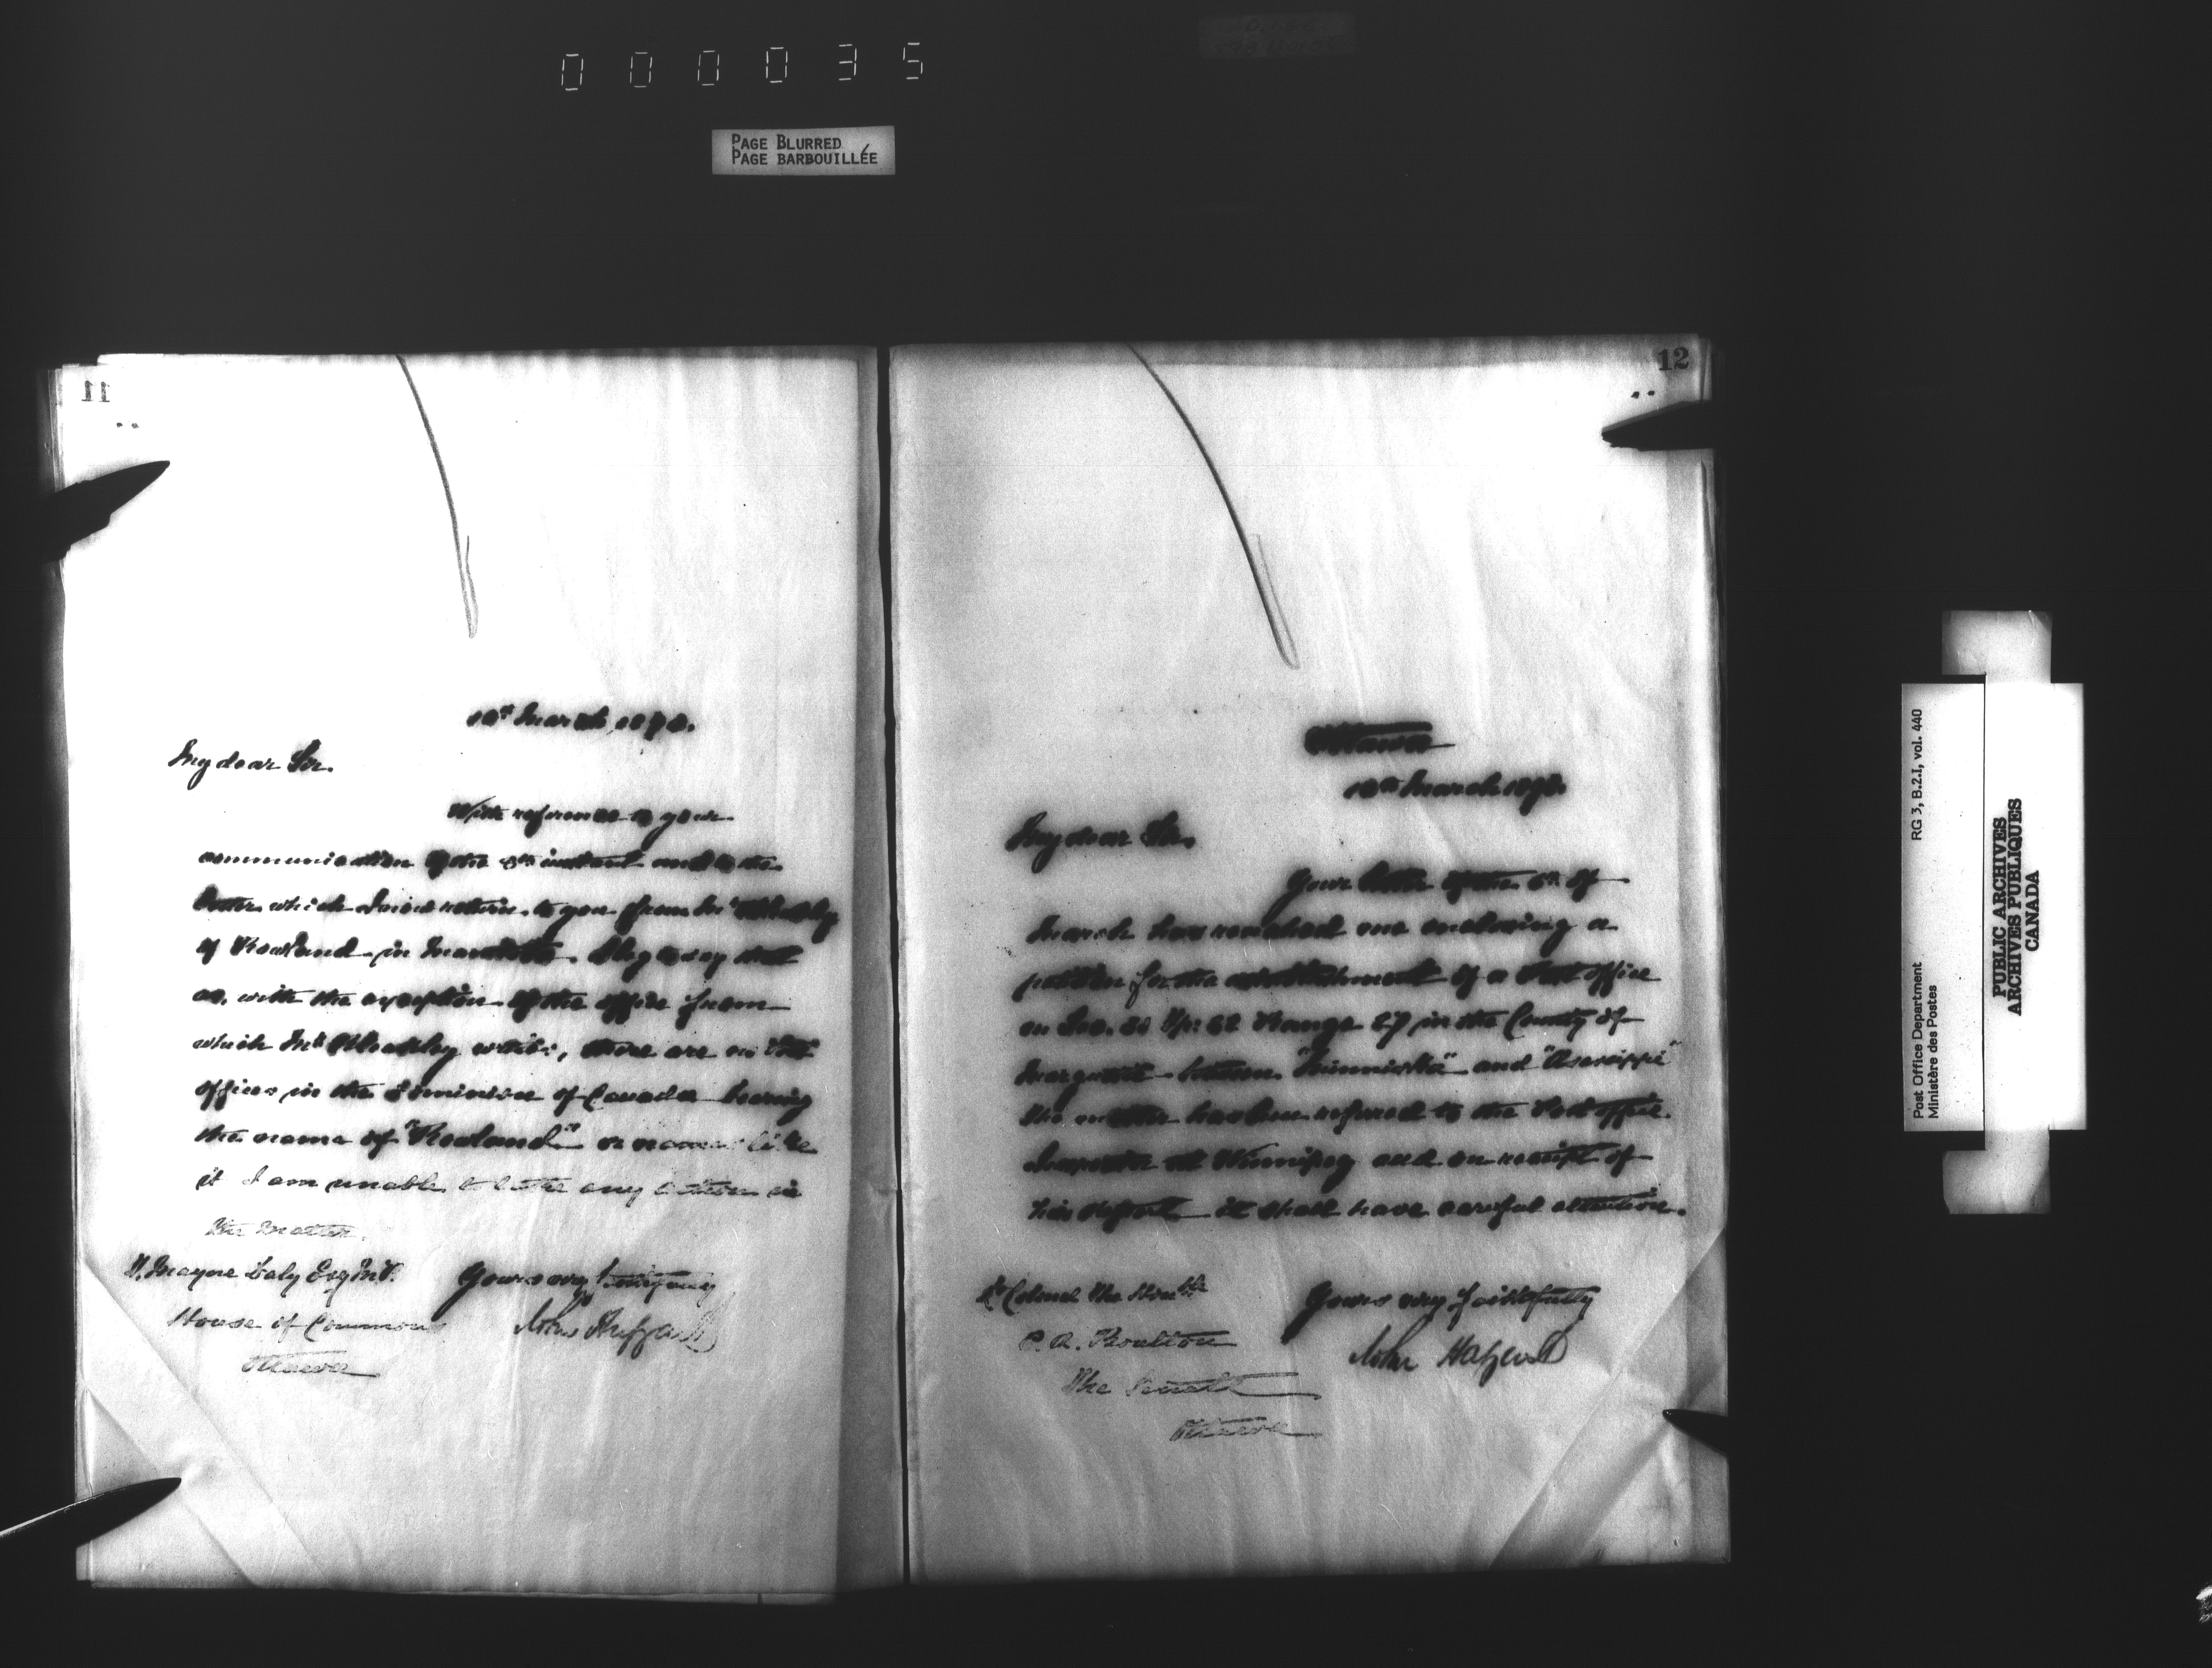 000035
PAGE BLURRED
PAGE BARBOUILLÉE
11
My dear Sir.
With reference to your
communication of the instant and to the
letter which I now return to you from Mr
of Rowland in I beg to say that
as, with the exception of the office from
which Mr writes, there are no Post
offices in the Dominion of Canada bearing
the name of "Rowland" or names like
it I am unable to take any action in
the matter.
T. Mayne Daly Esq M.P.
House of Commons
Ottawa
Yours very faithfully
John Haggart
12
Ottawa
March
My dear Sir,
Your letter of the 6th of
March has reached me enclosing a
petition for the establishment of a Post office
on Sec. Range 27 in the County of
Marquette between and "Assessippi"
The matter has been referred to the Post office
Inspector at Winnipeg and on receipt of
his report it shall have careful attention.
Lt Colonel The Honble
C. A. Boulton
The Senate
Ottawa
Yours very faithfully
John Haggart
Post Office Department RG 3, B.2.I, vol. 440
Ministère des Postes
PUBLIC ARCHIVES
ARCHIVES PUBLIQUES
CANADA